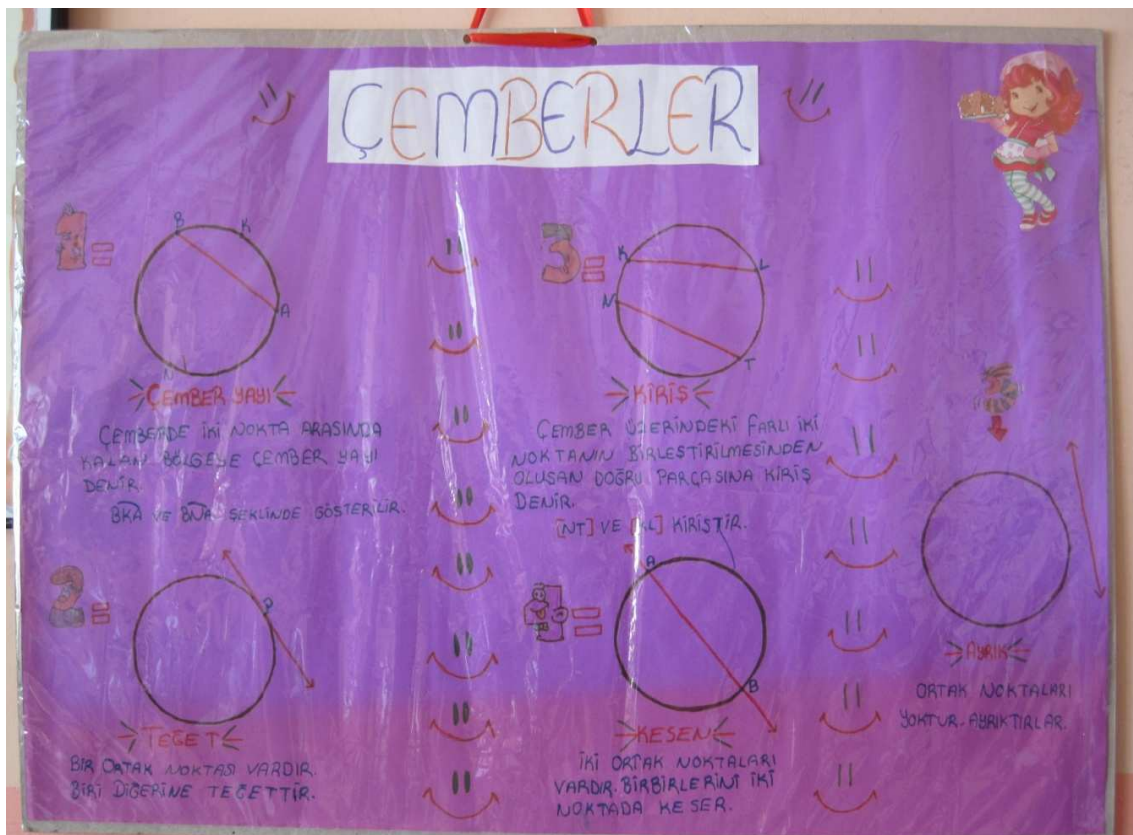 ÇEMBERLER
1=
B
K
A
N
ÇEMBER YAYI
ÇEMBERDE İKİ NOKTA ARASINDA
KALAN BÖLGEYE ÇEMBER YAYI
DENİR.
BKA VE BNA ŞEKLİNDE GÖSTERİLİR.
2=
P
TEĞET
BİR ORTAK NOKTASI VARDIR.
BİRİ DİĞERİNE TEĞETTİR.
3=
K
L
N
T
KİRİŞ
ÇEMBER ÜZERİNDEKİ FARLI İKİ
NOKTANIN BİRLEŞTİRİLMESİNDEN
OLUŞAN DOĞRU PARÇASINA KİRİŞ
DENİR.
[NT] VE [KL] KİRİŞTİR.
4=
A
B
KESEN
İKİ ORTAK NOKTALARI
VARDIR. BİRBİRLERİNİ İKİ
NOKTADA KESER.
5
AYRIK
ORTAK NOKTALARI
YOKTUR. AYRIKTIRLAR.